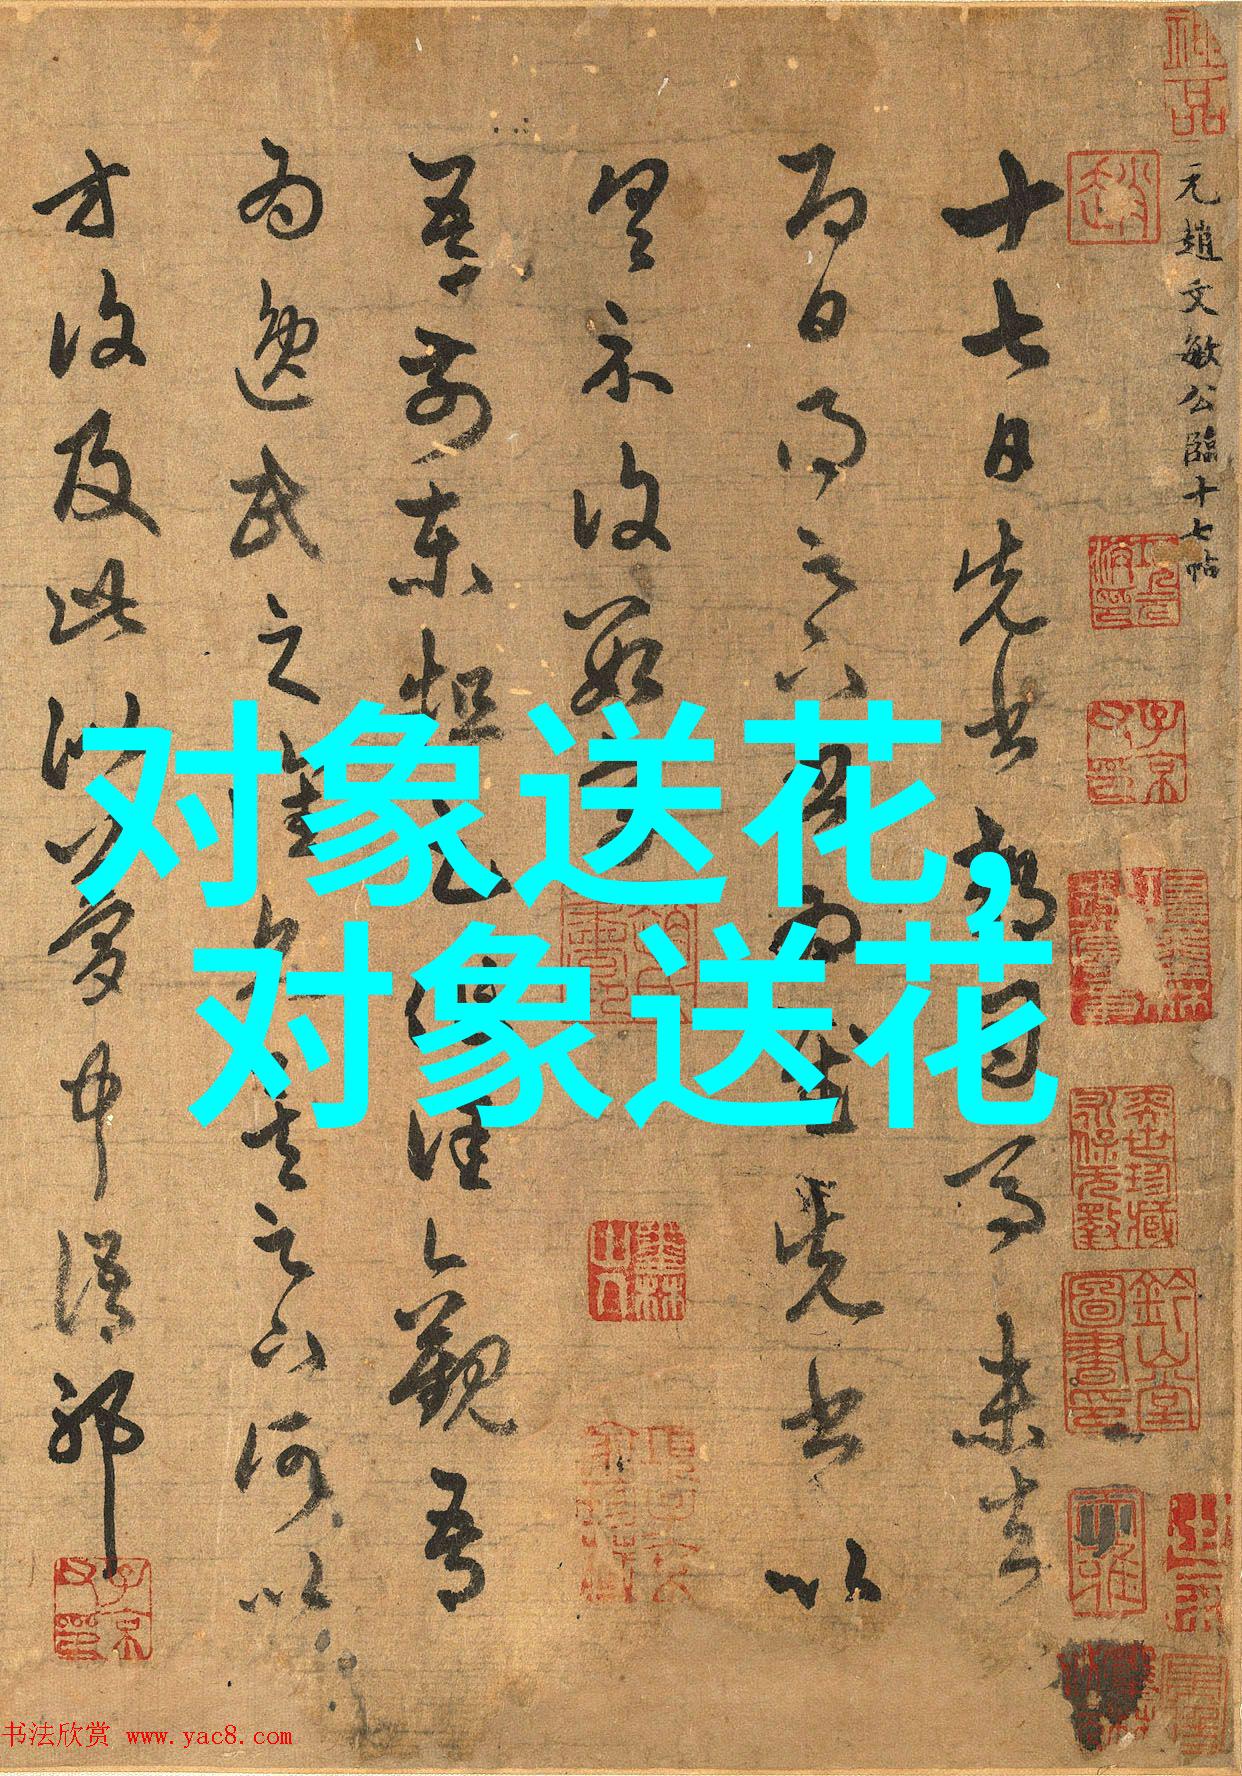 元趙文敏公臨十七帖
十七日先書郗司馬未去
即日得足下書為慰先書以
具示復數字
吾前東粗足作佳觀吾
為逸民之懷久矣足下何以
方復及此似夢中語耶
对象送花,
对象送花
书法欣赏 www.yac8.com